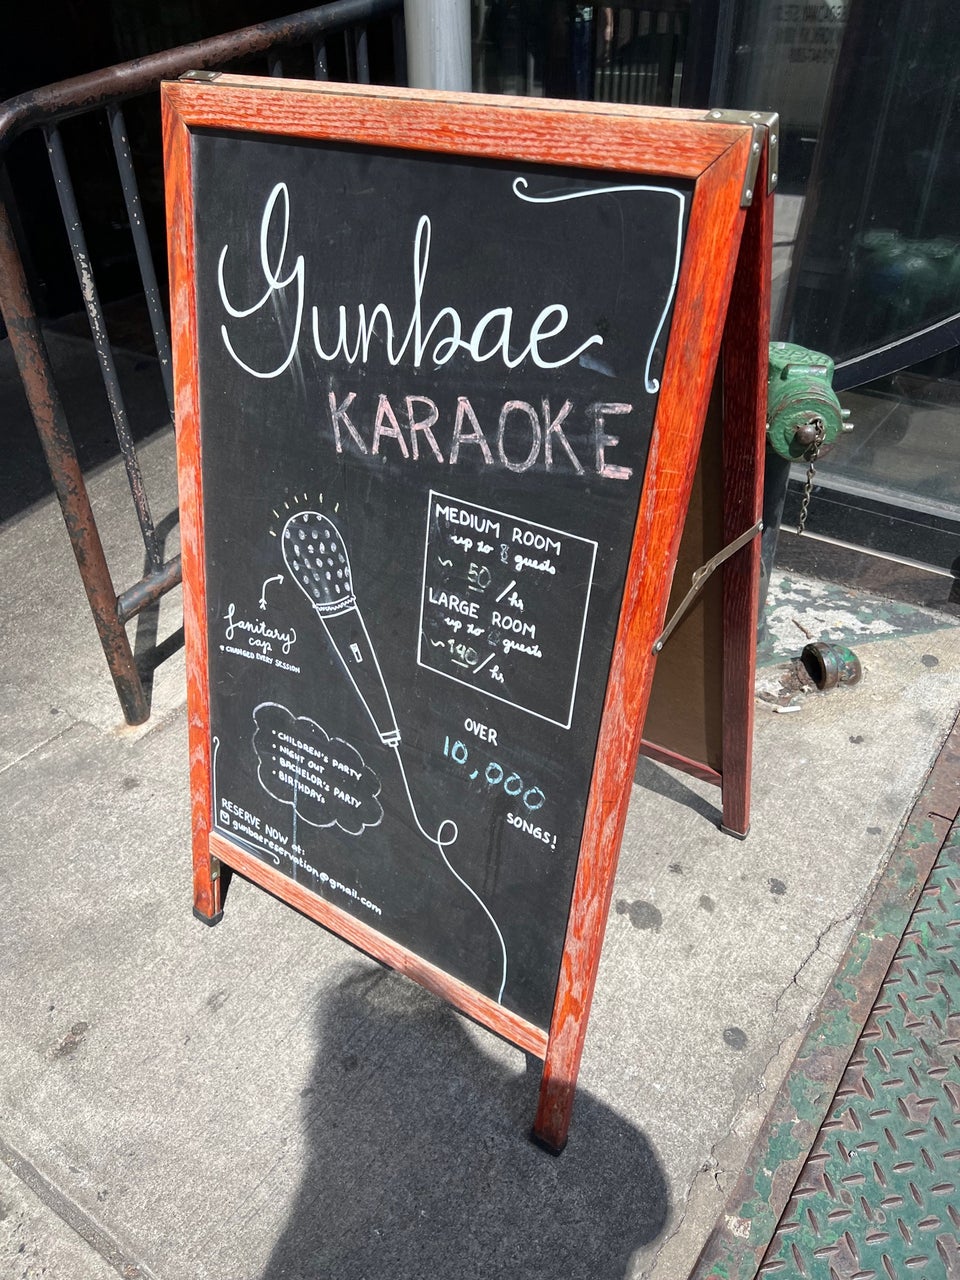 Gunbae
KARAOKE
MEDIUM ROOM
up to 8 guests
~ 50/hr
LARGE ROOM
up to guests
~ 140/hr
Sanitary
cap
* CHANGED EVERY SESSION
OVER
10,000
SONGS!
• CHILDREN'S PARTY
• NIGHT OUT
• BACHELOR'S PARTY
• BIRTHDAYS
RESERVE NOW at:
gunbaereservation@gmail.com